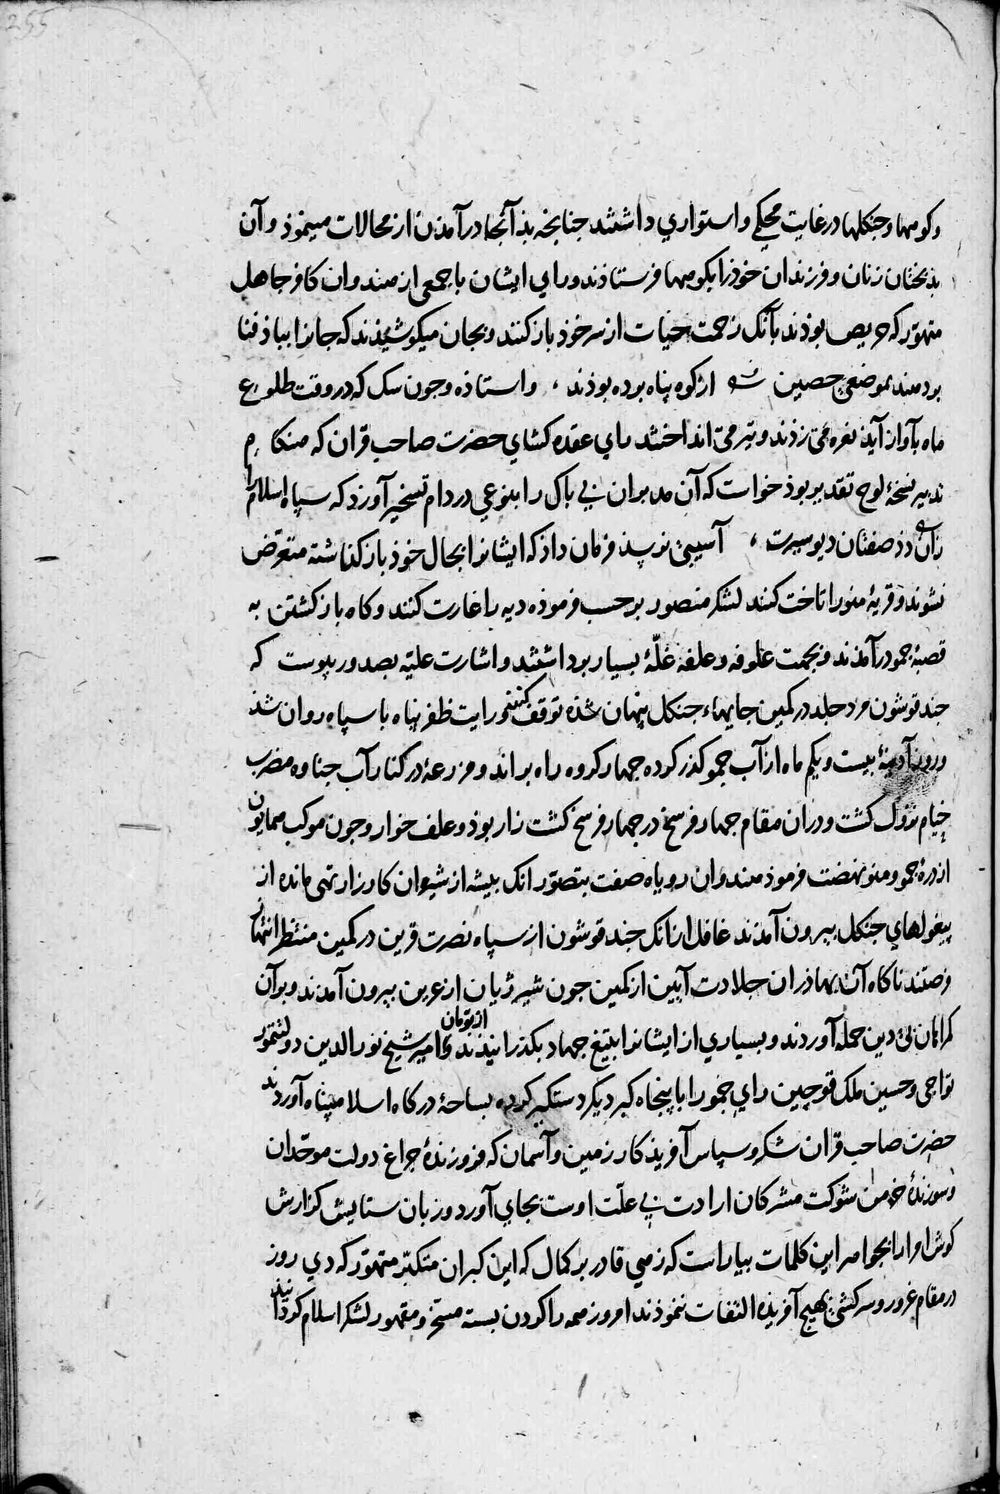 255
و کوهها و جنکلها در غایت محکی و استواری داشتند جنانجه بذ آنجا در آمدن از محالات مینموذ و آن
بدبختان زنان و فرزندان خوذ را بکوهها فرستاذند و رای ایشان با جمعی از هندوان کافر جاهل
متهوّر که حریص بوذند بآنک زحمت حیات از سر خوذ باز کنند و بجان میکوشیذند که جانرا بباذ فنا
بردهند بموضعی حصین از کوه پناه برده بوذند ، و استاذه و جون سک که در وقت طلوع
ماه بآواز آیذ نعره می زذند و تیر می انداختند رای عقده کشای حضرت صاحب قران که هنکام
تدبیر نسخهٔ لوح تقدیر بوذ خواست که آن مدبران بی باک را بنوعی در دام تسخیر آورذ که سپاه اسلام را
زان دذ صفتان دیو سیرت ، آسیبی نرسذ فرمان داذ که ایشانرا بحال خوذ باز کذاشته متعرّض
نشوند و قریهٔ منو را تاخت کنند لشکر منصور بر حسب فرموذه دیه را غارت کنند و کاه باز کشتن به
قصبهٔ جمو در آمذند و بجهت علوفه و علفه غلّهٔ بسیار برداشتند و اشارت علیّه بصدور پیوست که
جند قوشون مرد جلد در کمین جایهاء جنکل پنهان شذه توقف کنند و رایت ظفر پناه با سپاه روان شذ
و روز آدینهٔ بیست و یکم ماه از آب جمو کذر کرده جهار کروه راه براند و مزرعهٔ در کنار آب جناوه مضرب
خیام نزول کشت و دران مقام جهار فرسخ در جهار فرسخ کشت زار بوذ و علف خوار و جون موکب همایون
از درهٔ جمو و منو نهضت فرموذ هندوان روباه صفت بتصوّر انک بیشه از شیران کارزار تهی مانده از
بیغولهای جنکل بیرون آمذند غافل از انک جند قوشون از سپاه نصرت قرین در کمین منتظر انتهاز
فرصتند ناکاه آن بهاذران جلادت آیین از کمین جون شیر ژیان از عرین بیرون آمذند و بر آن
کمراهان بی دین حمله آوردند و بسیاری از ایشانرا بتیغ جهاد بکذرانیذند و از تومان امیر شیخ نور الدین دولتتمور
تواجی و حسین ملک قوجین رای جمو را با پنجاه کبر دیکر دستکیر کرده بساحهٔ درکاه اسلام پناه آوردند
حضرت صاحب قران شکر و سپاس آفریذکار زمین و آسمان که فروزندهٔ جراغ دولت موحّدان
و سوزندهٔ خرمن شوکت مشرکان ارادت بی علّت اوست بجای آورد و زبان ستایش کزارش
کوش امرا را بجواهر این کلمات بیاراست که زهی قادر بر کمال که این کبران متکبّر متهوّر که دی روز
در مقام غرور و سرکشی بهیج آفریذه التفات ننموذند امروز همه را کردن بسته مسخّر و مقهور لشکر اسلام کردانیذ